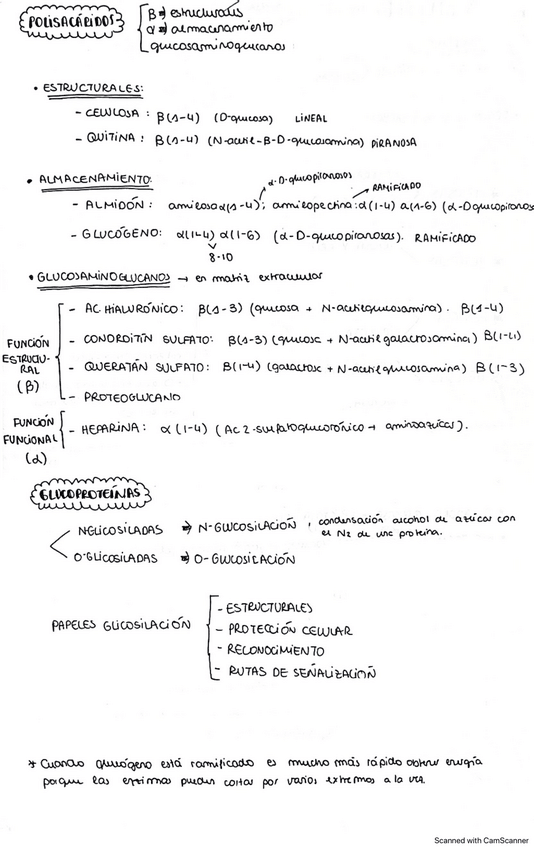 POLISACÁRIDOS
β ⇒ estructurales
α ⇒ almacenamiento
glucosaminoglucanos
• ESTRUCTURALES:
- CELULOSA : β(1-4) (D-glucosa) LINEAL
- QUITINA : β(1-4) (N-acetil-B-D-glucosamina) PIRANOSA
• ALMACENAMIENTO:
α-D-glucopiranosas
RAMIFICADO
- ALMIDÓN: amilosa α(1-4); amilopectina: α(1-4) α(1-6) (α-D glucopiranos
- GLUCÓGENO: α(1-4) α(1-6) (α-D-glucopiranosas). RAMIFICADO
8-10
• GLUCOSAMINOGLUCANOS → en matriz extracelular
FUNCIÓN ESTRUCTU-RAL (β)
- AC. HIALURÓNICO: β(1-3) (glucosa + N-acetilglucosamina). β(1-4)
- CONDROITÍN SULFATO: β(1-3) (glucosa + N-acetil galactosamina) β(1-4)
- QUERATÁN SULFATO: β(1-4) (galactosa + N-acetilglucosamina) β(1-3)
- PROTEOGLUCANO
FUNCIÓN FUNCIONAL (α)
- HEPARINA: α (1-4) (Ac 2-sulfatoglucorónico → aminoazúcar).
GLUCOPROTEÍNAS
NGLICOSILADAS ⇒ N-GLUCOSILACIÓN , condensación alcohol de azúcar con
el N2 de una proteína.
O'GLICOSILADAS ⇒ O-GLUCOSILACIÓN
PAPELES GLICOSILACIÓN
- ESTRUCTURALES
- PROTECCIÓN CELULAR
- RECONOCIMIENTO
- RUTAS DE SEÑALIZACIÓN
* Cuando glucógeno está ramificado es mucho más rápido obtener energía
porque las enzimas pueden cortar por varios extremos a la vez.
Scanned with CamScanner